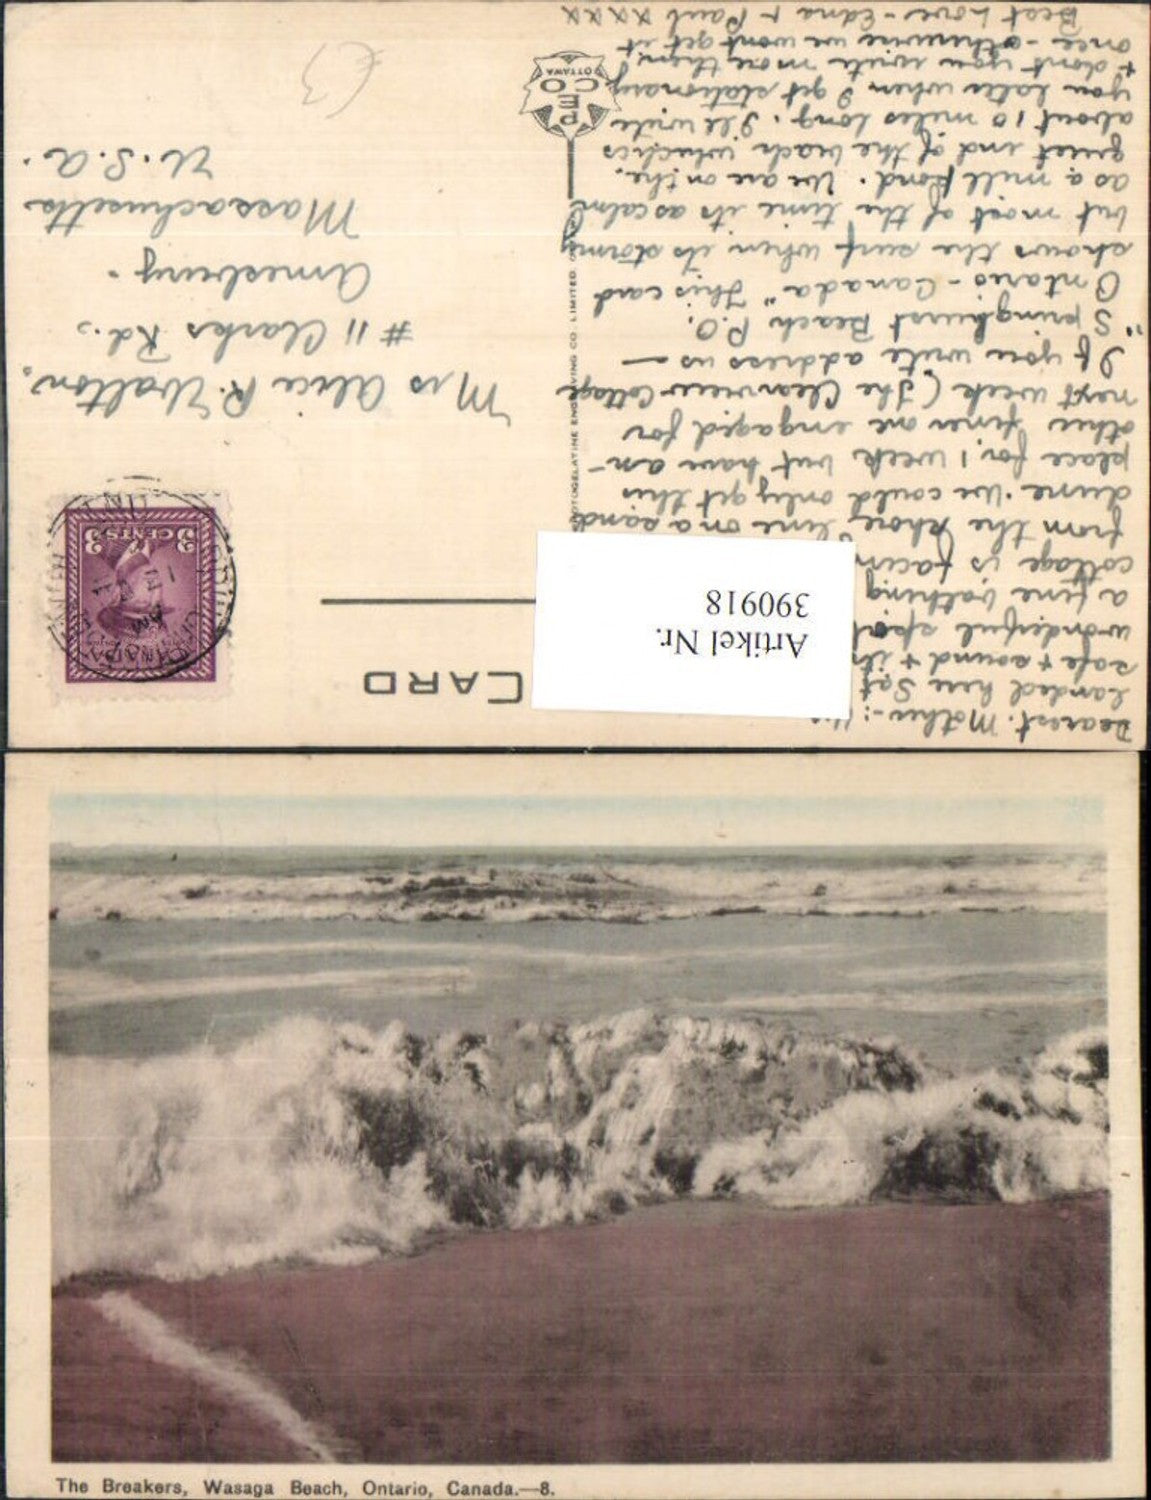 Dearest Mother-:
Landed here Sat
safe + sound + it's
wonderful spot
a fine bathing
cottage is facing
from the shore, line on a sand
dune. We could only get this
place for 1 week but have an-
other finer one engaged for
next week (The Clearview Cottage
If you write address us —
"Springhurst Beach P.O.
Ontario - Canada" This card
shows the surf when its stormy
but most of the time its as calm
as a mill pond. We are on the
quiet end of the beach which is
about 10 miles long. I'll write
you later when I get stationary
+ dont you write more then
once - otherwise we wont get it
Best Love - Edna + Paul xxxx
CARD
Artikel Nr.
390918
PECO
OTTAWA
GELATINE ENGRAVING CO. LIMITED
3 CENTS 3
CANADA
AM
Mrs Alice R. Walton,
#11 Clarks Rd.,
Amesbury.
Massachusetts
U.S.A.
The Breakers, Wasaga Beach, Ontario, Canada.—8.